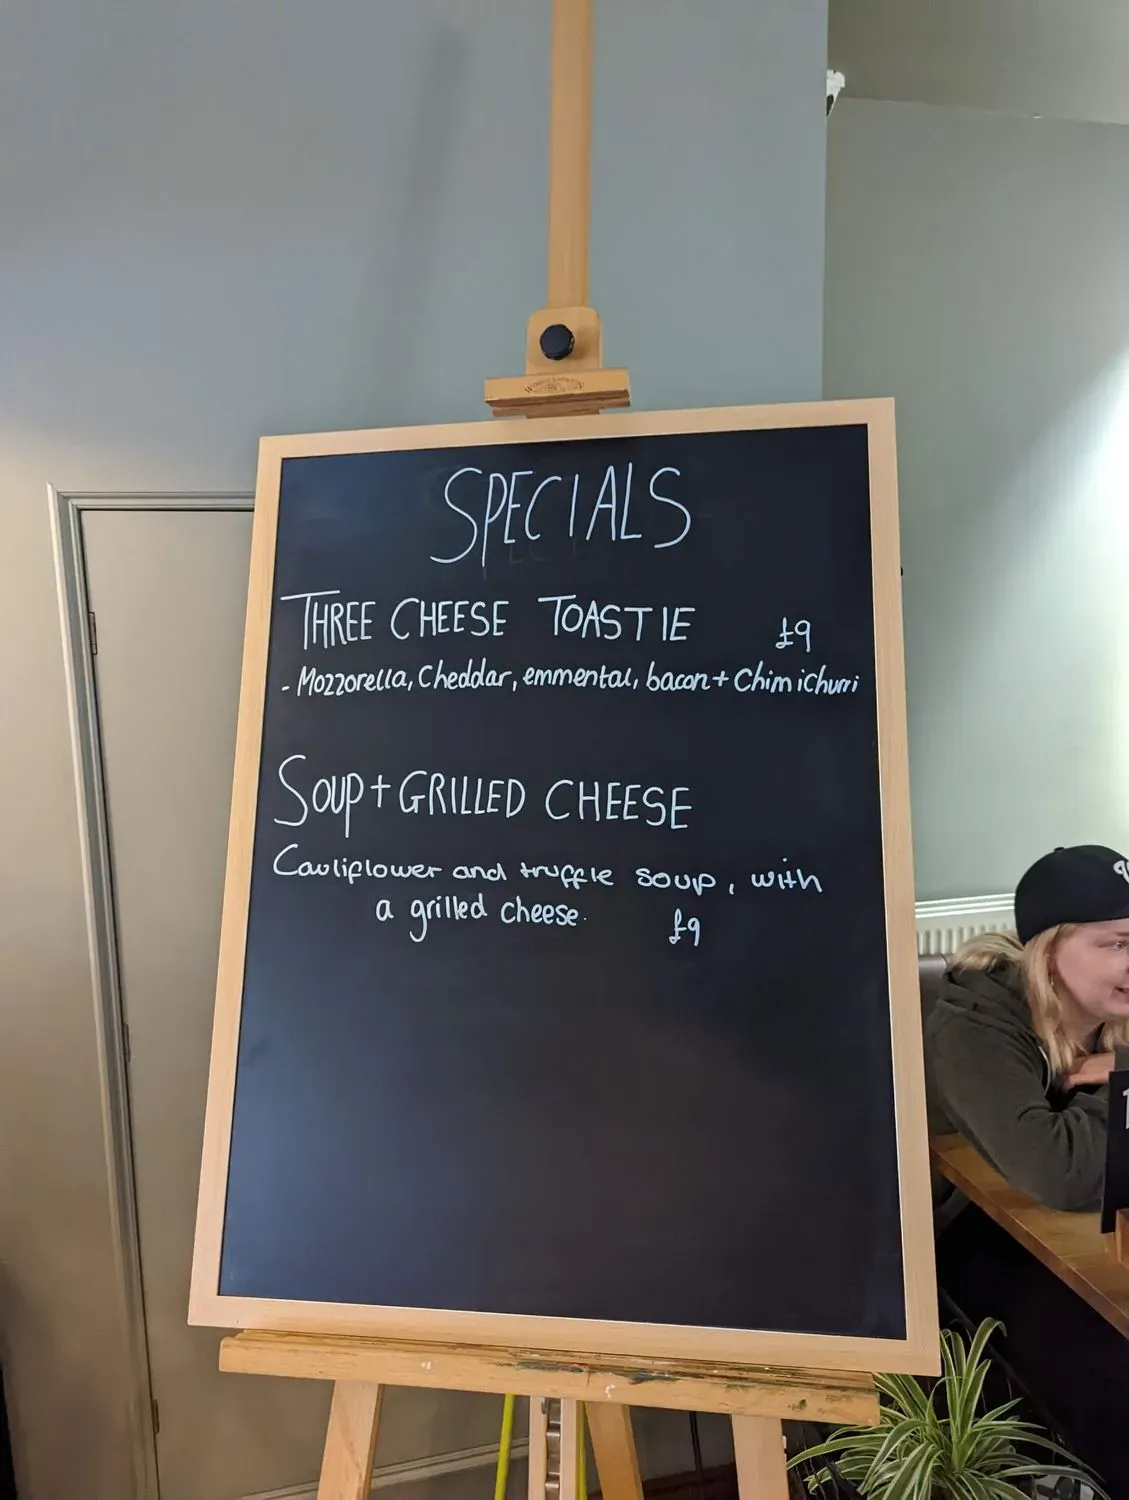 SPECIALS
THREE CHEESE TOASTIE £9
- Mozzorella, Cheddar, emmental, bacon + Chimichurri
SOUP + GRILLED CHEESE
Cauliflower and truffle soup, with
a grilled cheese. £9